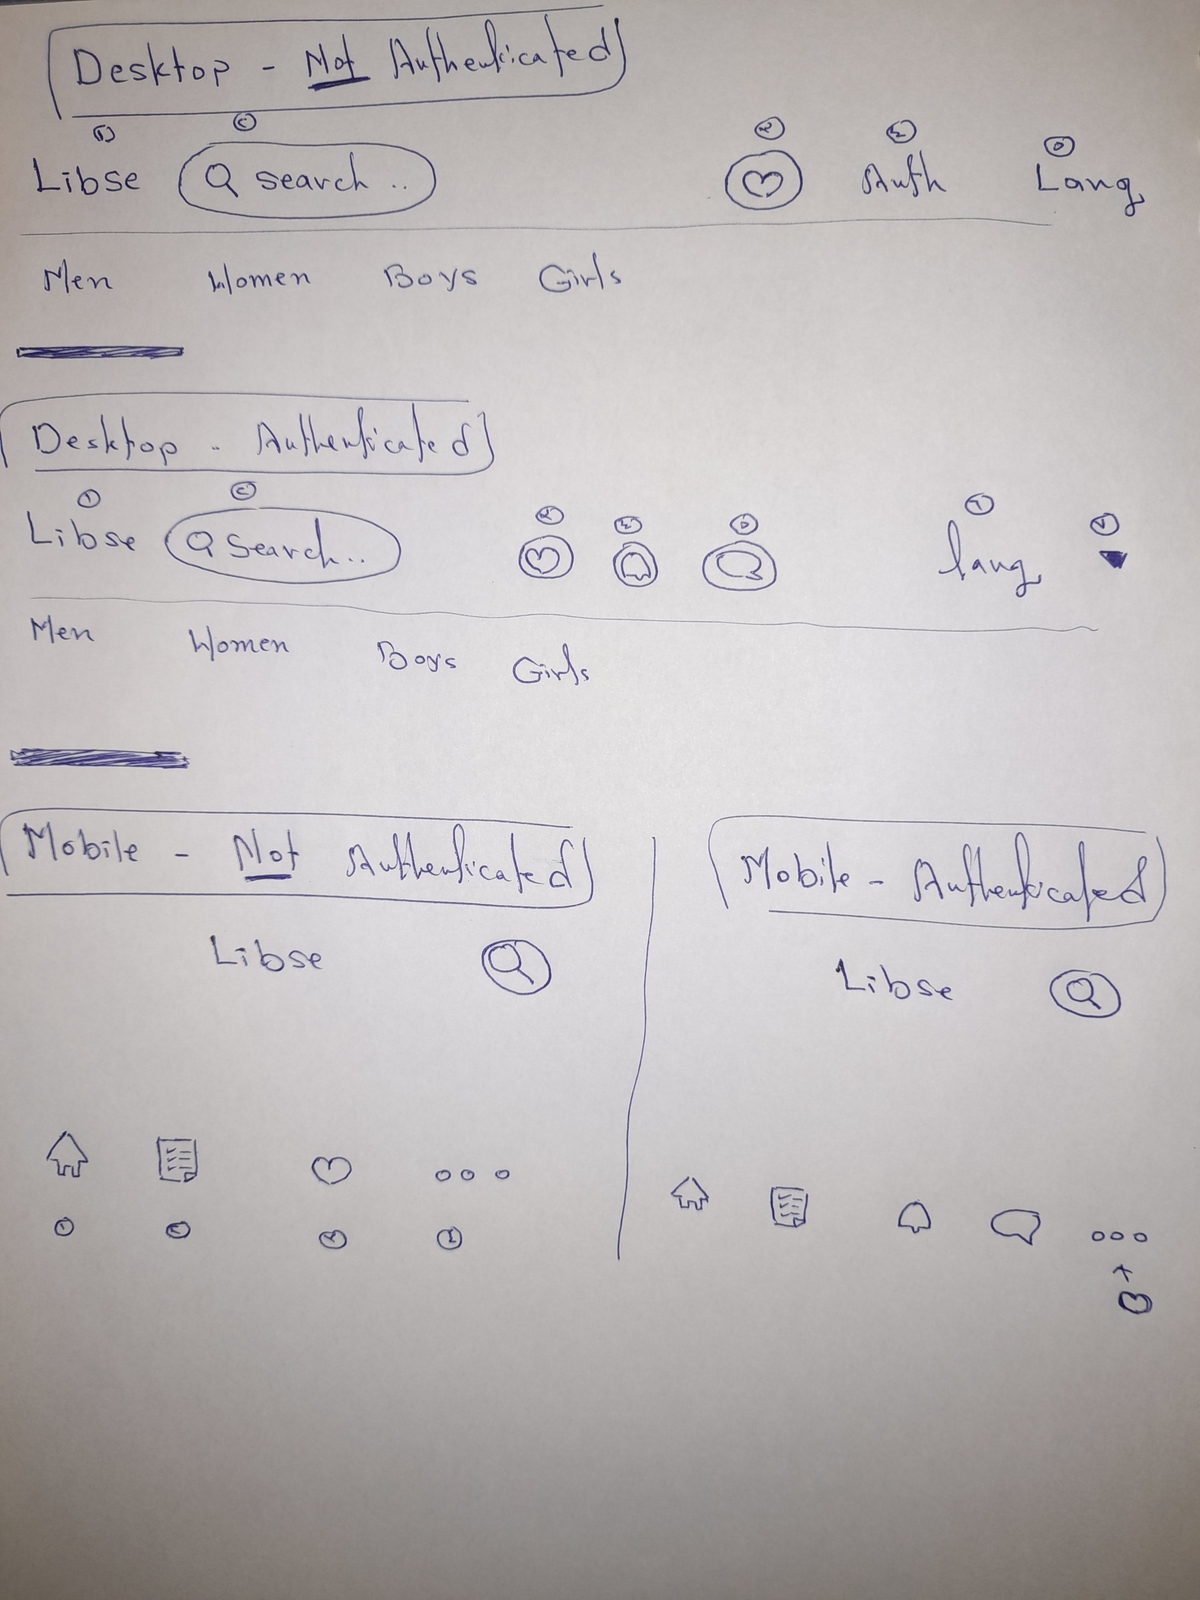 Desktop - Not Authenticated
Libse search .. Auth Lang
Men Women Boys Girls
Desktop - Authenticated
Libse Search.. lang
Men Women Boys Girls
Mobile - Not Authenticated
Libse
Mobile - Authenticated
Libse